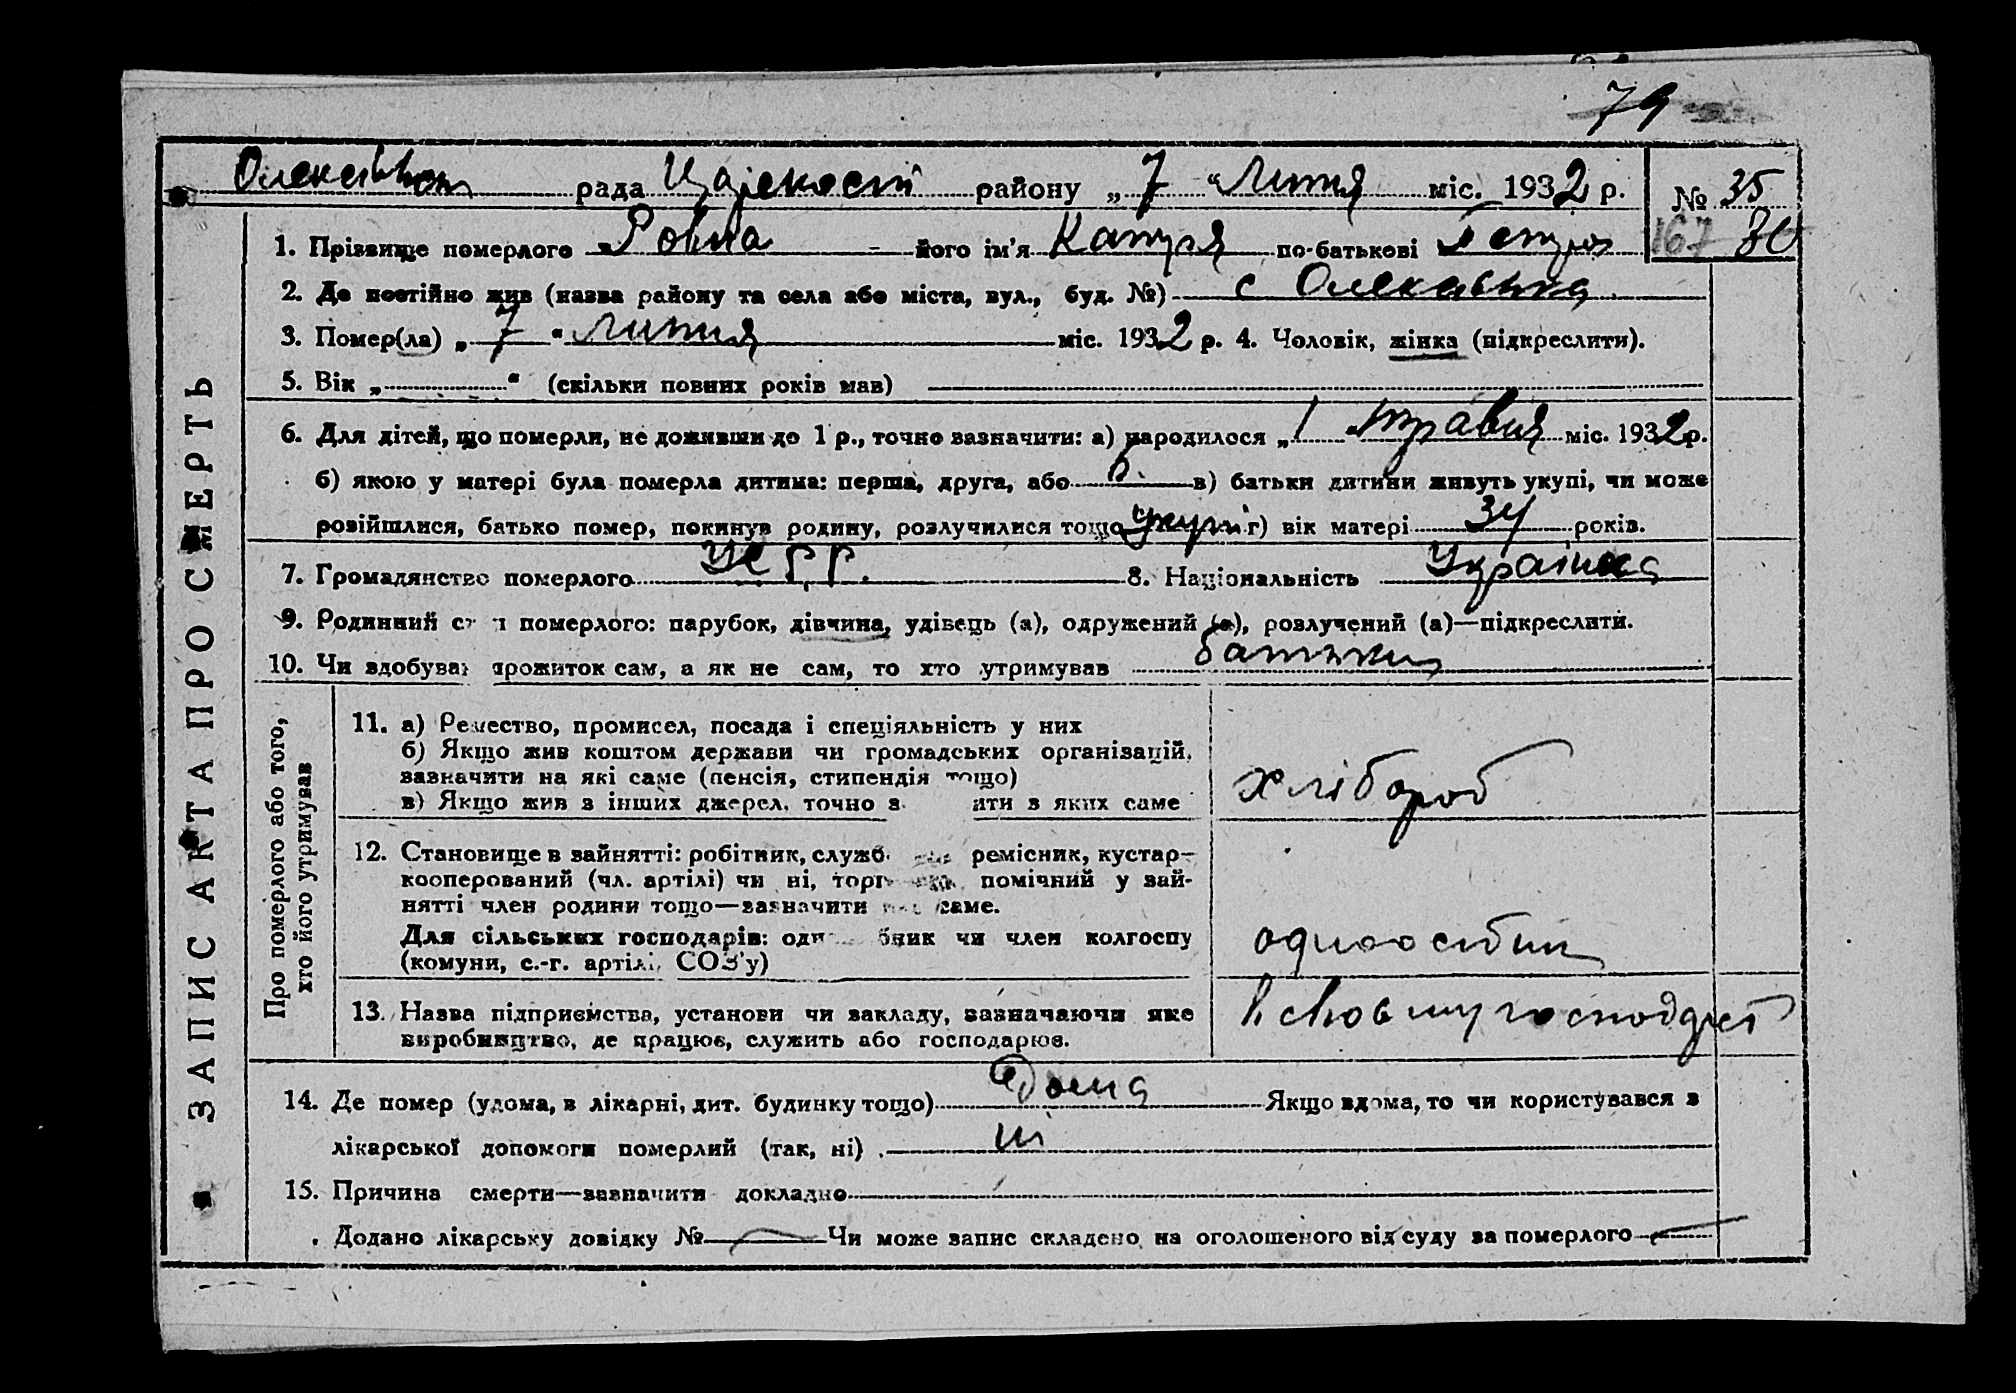 79
рада району „ 7 “ Липня міс. 1932 р. № 35
1. Прізвище померлого Ровна його ім'я по-батькові 167 80
2. Де постійно жив (назва району та села або міста, вул., буд. №) с Олексавка
3. Помер(ла) „ 7 “ Липня міс. 1932 р. 4. Чоловік, жінка (підкреслити).
5. Вік „ “ (скільки повних років мав)
6. Для дітей, що померли, не доживши до 1 р., точно зазначити: а) народилося „ 1 “ травня міс. 1932 р.
б) якою у матері була померла дитина: перша, друга, або 6. в) батьки дитини живуть укупі, чи може
розійшлися, батько помер, покинув родину, розлучилися тощо укупі г) вік матері 34 років.
7. Громадянство померлого УСРР. 8. Національність Українка
9. Родинний стан померлого: парубок, дівчина, удівець (а), одружений (а), розлучений (а)—підкреслити.
10. Чи здобував прожиток сам, а як не сам, то хто утримував батьки
ЗАПИС АКТА ПРО СМЕРТЬ
Про померлого або того,
хто його утримував
11. а) Ремество, промисел, посада і спеціяльність у них
б) Якщо жив коштом держави чи громадських організацій,
зазначити на які саме (пенсія, стипендія тощо)
в) Якщо жив з інших джерел, точно з ати з яких саме
хлібороб
12. Становище в зайнятті: робітник, служб ремісник, кустар-
кооперований (чл. артілі) чи ні, торг помічний у зай-
нятті член родини тощо—зазначити саме.
Для сільських господарів: одн бник чи член колгоспу
(комуни, с.-г. артілі, СОЗ'у)
одноосібник
13. Назва підприємства, установи чи закладу, зазначаючи яке
виробництво, де працює, служить або господарює.
в своему господарст
14. Де помер (удома, в лікарні, дит. будинку тощо) дома Якщо вдома, то чи користувався з
лікарської допомоги померлий (так, ні) ні
15. Причина смерти—зазначити докладно
Додано лікарську довідку № Чи може запис складено на оголошеного від суду за померлого